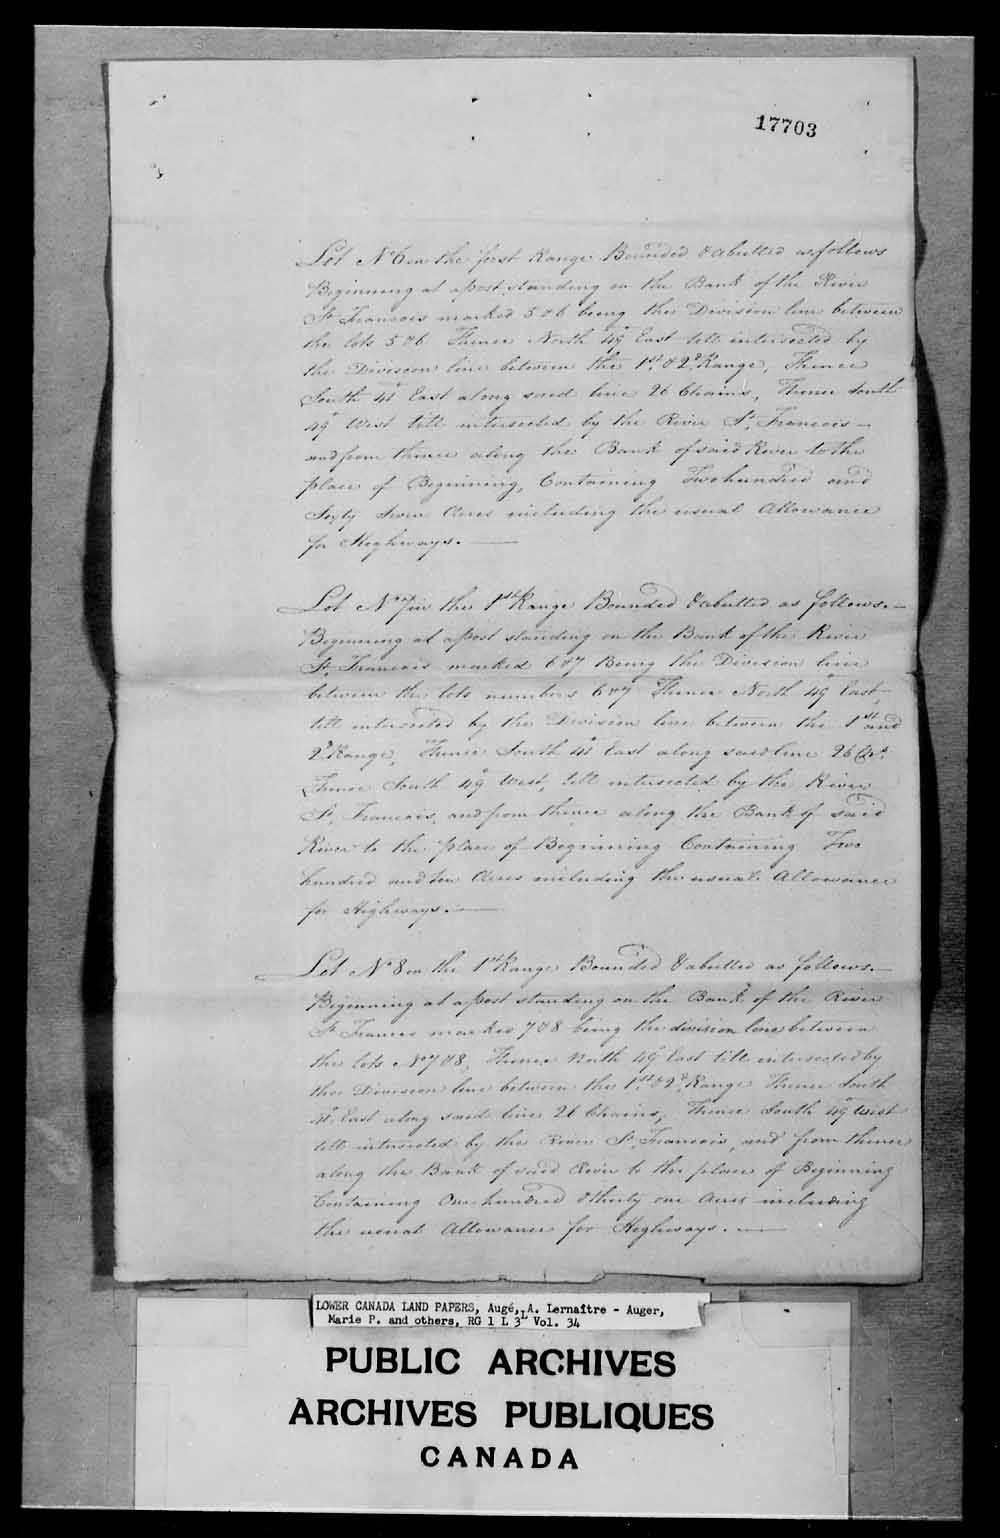 17703
Lot No 6 in the first Range Bounded & abutted as follows
Beginning at a post standing on the Bank of the River
St Francois marked 5 & 6 being the Division line between
the lots 5 & 6 Thence North 49° East till intersected by
the Division line between the 1st & 2d Range, Thence
South 41° East along said line 26 Chains, Thence South
49° West till intersected by the River St. Francois
and from thence along the Bank of said River to the
place of Beginning, Containing Two hundred and
Sixty Acres including the usual Allowance
for Highways.
Lot No 7 in the 1st Range Bounded & abutted as follows.
Beginning at a post standing on the Bank of the River
St. Francois marked 6 & 7 Being the Division line
between the lots numbers 6 & 7 Thence North 49° East
till intersected by the Division line between the 1st and
2d Range, Thence South 41° East along said line 26 Chs.
Thence South 49° West, till intersected by the River
St. Francois, and from thence along the Bank of said
River to the place of Beginning Containing Two
hundred and ten Acres including the usual Allowance
for Highways.
Lot No 8 in the 1st Range Bounded & abutted as follows.
Beginning at a post standing on the Bank of the River
St Francis marked 7 & 8 being the division line between
the lots No 7 & 8, Thence North 49° East till intersected by
the Division line between the 1st & 2d Range Thence South
41° East along said line 26 Chains, Thence South 49° West
till intersected by the River St. Francois, and from thence
along the Bank of said River to the place of Beginning
Containing One hundred & thirty one Acres including
the usual Allowance for Highways.
LOWER CANADA LAND PAPERS, Augé, A. Lernaître - Auger,
Marie P. and others, RG 1 L 3L Vol. 34
PUBLIC ARCHIVES
ARCHIVES PUBLIQUES
CANADA